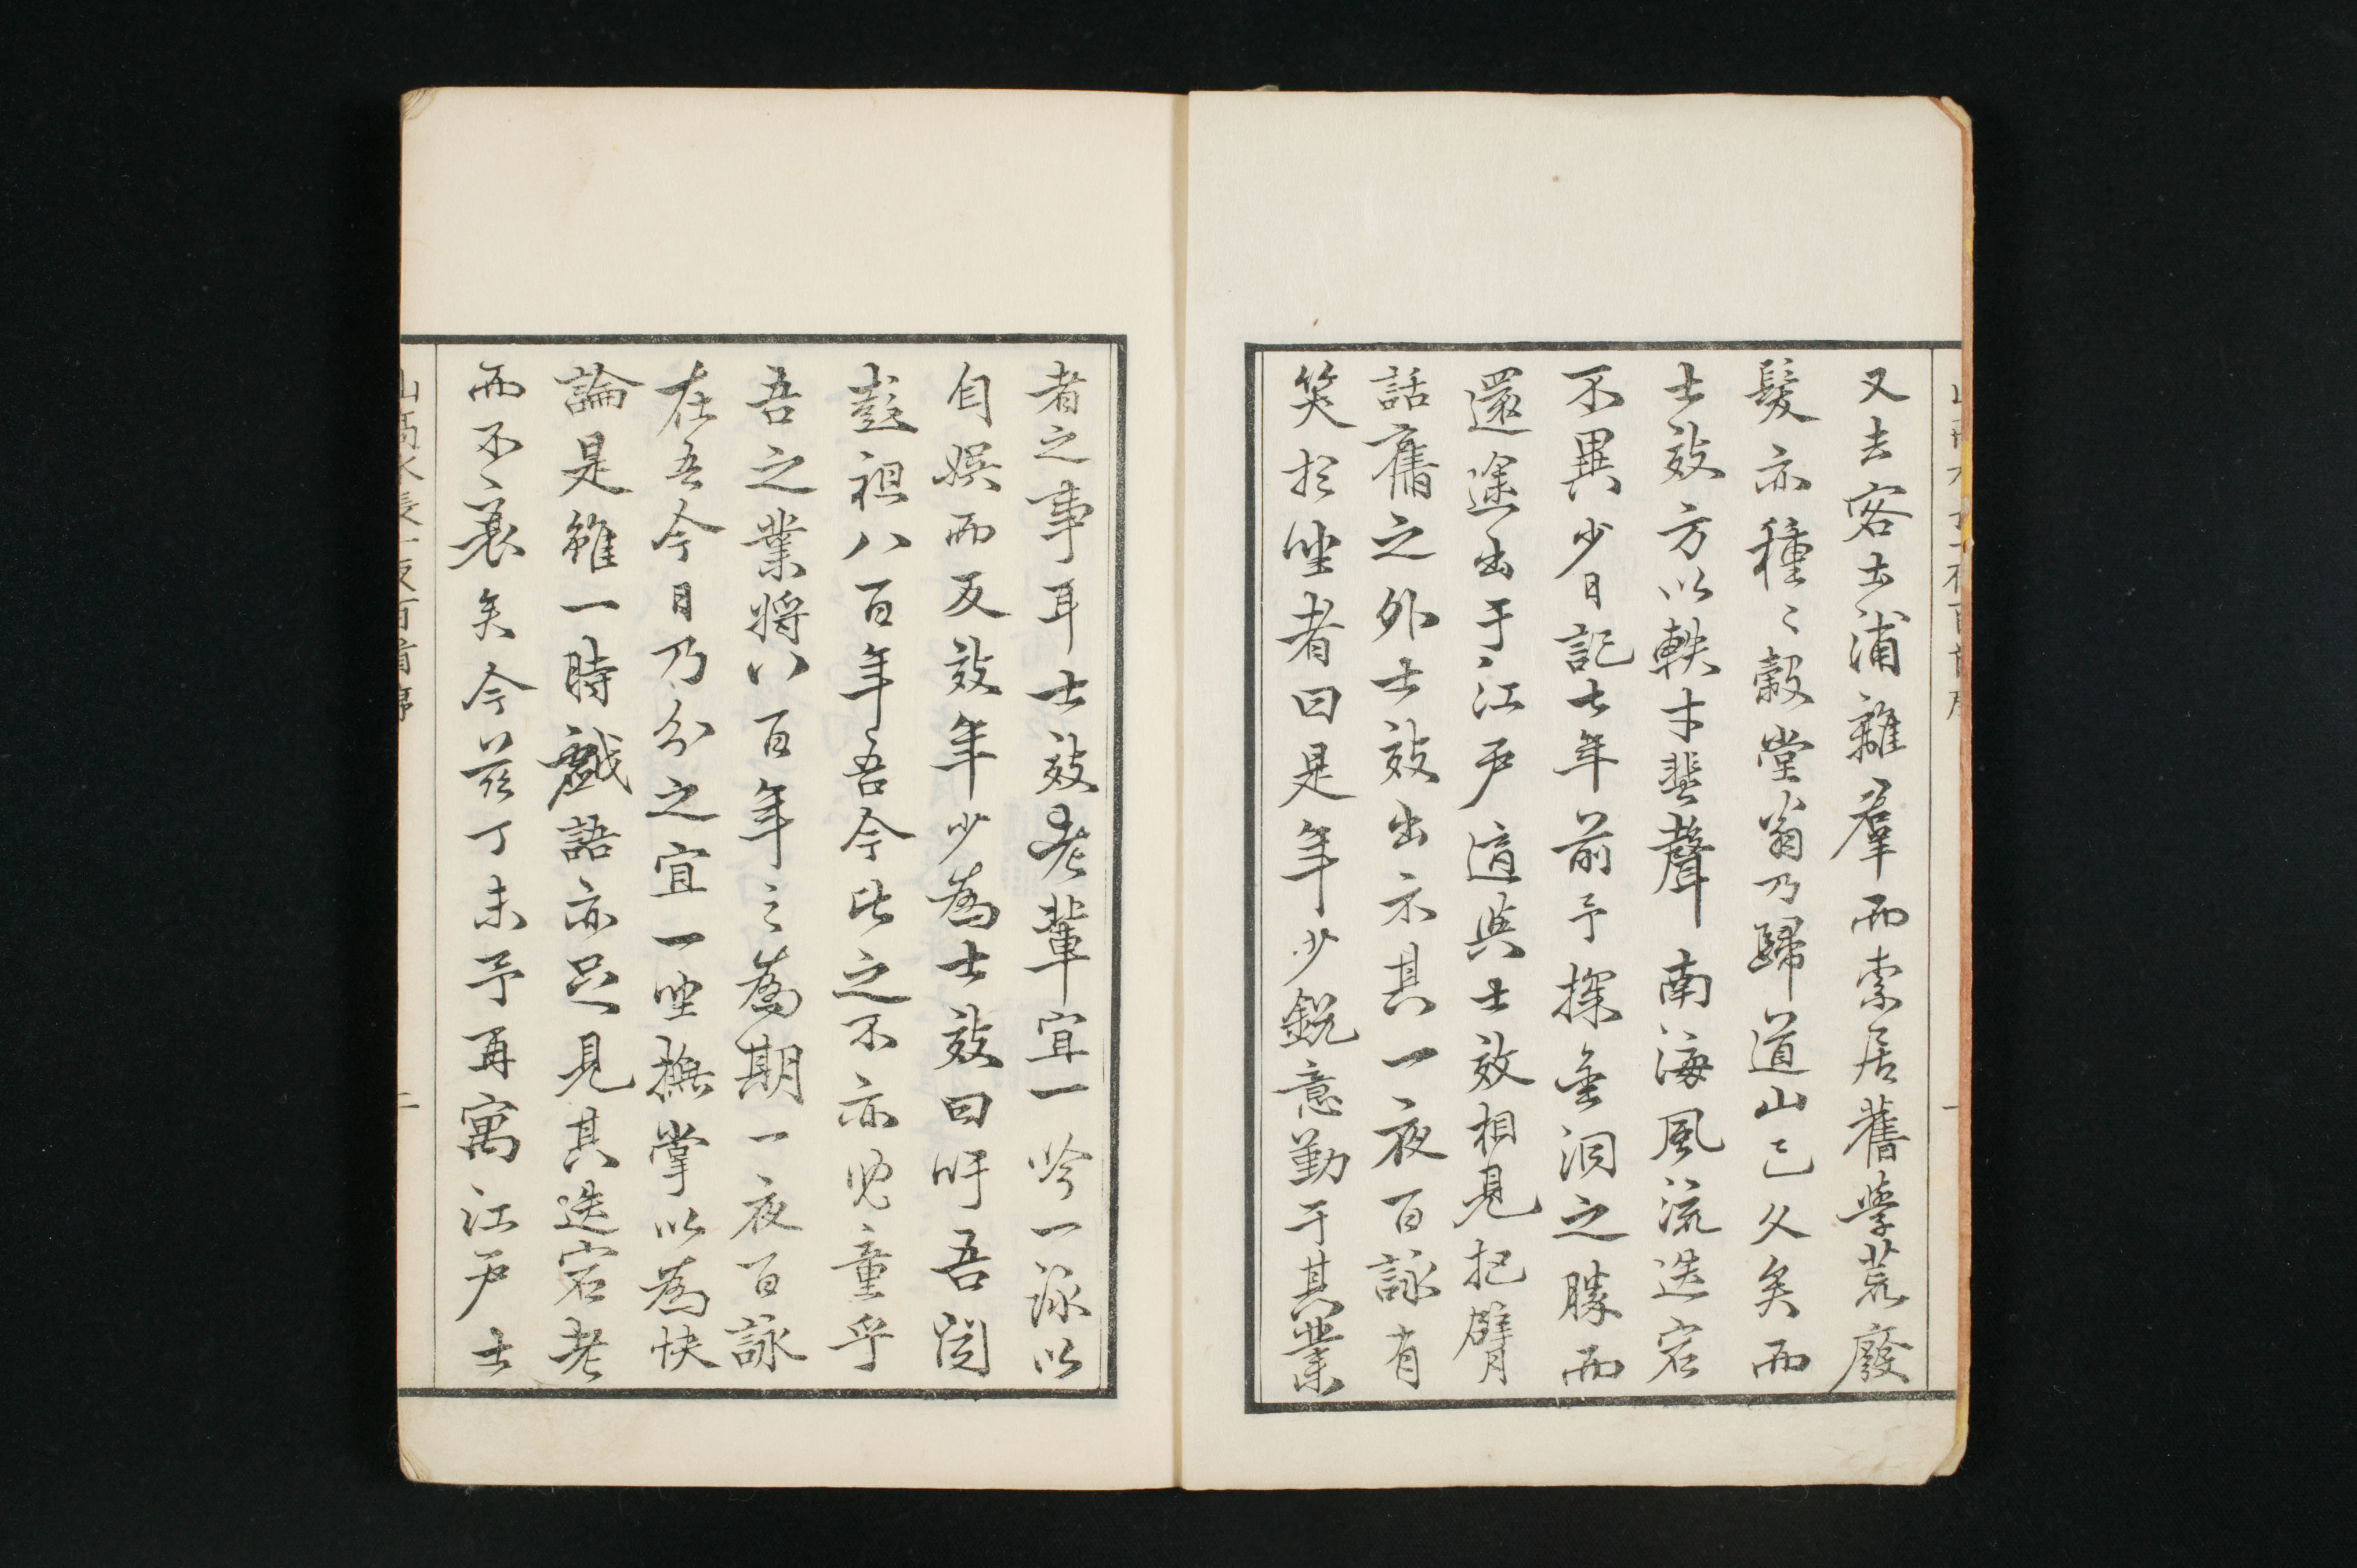 又去客土浦離羣而索居舊學荒廢
髮亦種〻穀堂翁乃歸道山已久矣而
士效方以軼才蜚聲南海風流迭宕
不異少日記七年前予探金洞之勝而
還途出于江戸適與士效相見把臂
話舊之外士效出示其一夜百詠有
笑於坐者曰是年少鋭意勤于其業
者之事耳士效老輩宜一吟一詠以
自娯而反效年少為士效曰吁吾聞
彭祖八百年吾今比之不亦兒童乎
吾之業將以百年之為期一夜百詠
在吾今日乃分之宜一坐撫掌以為快
論是雖一時戲語亦足見其迭宕老
而不衰矣今茲丁未予再寓江戸士